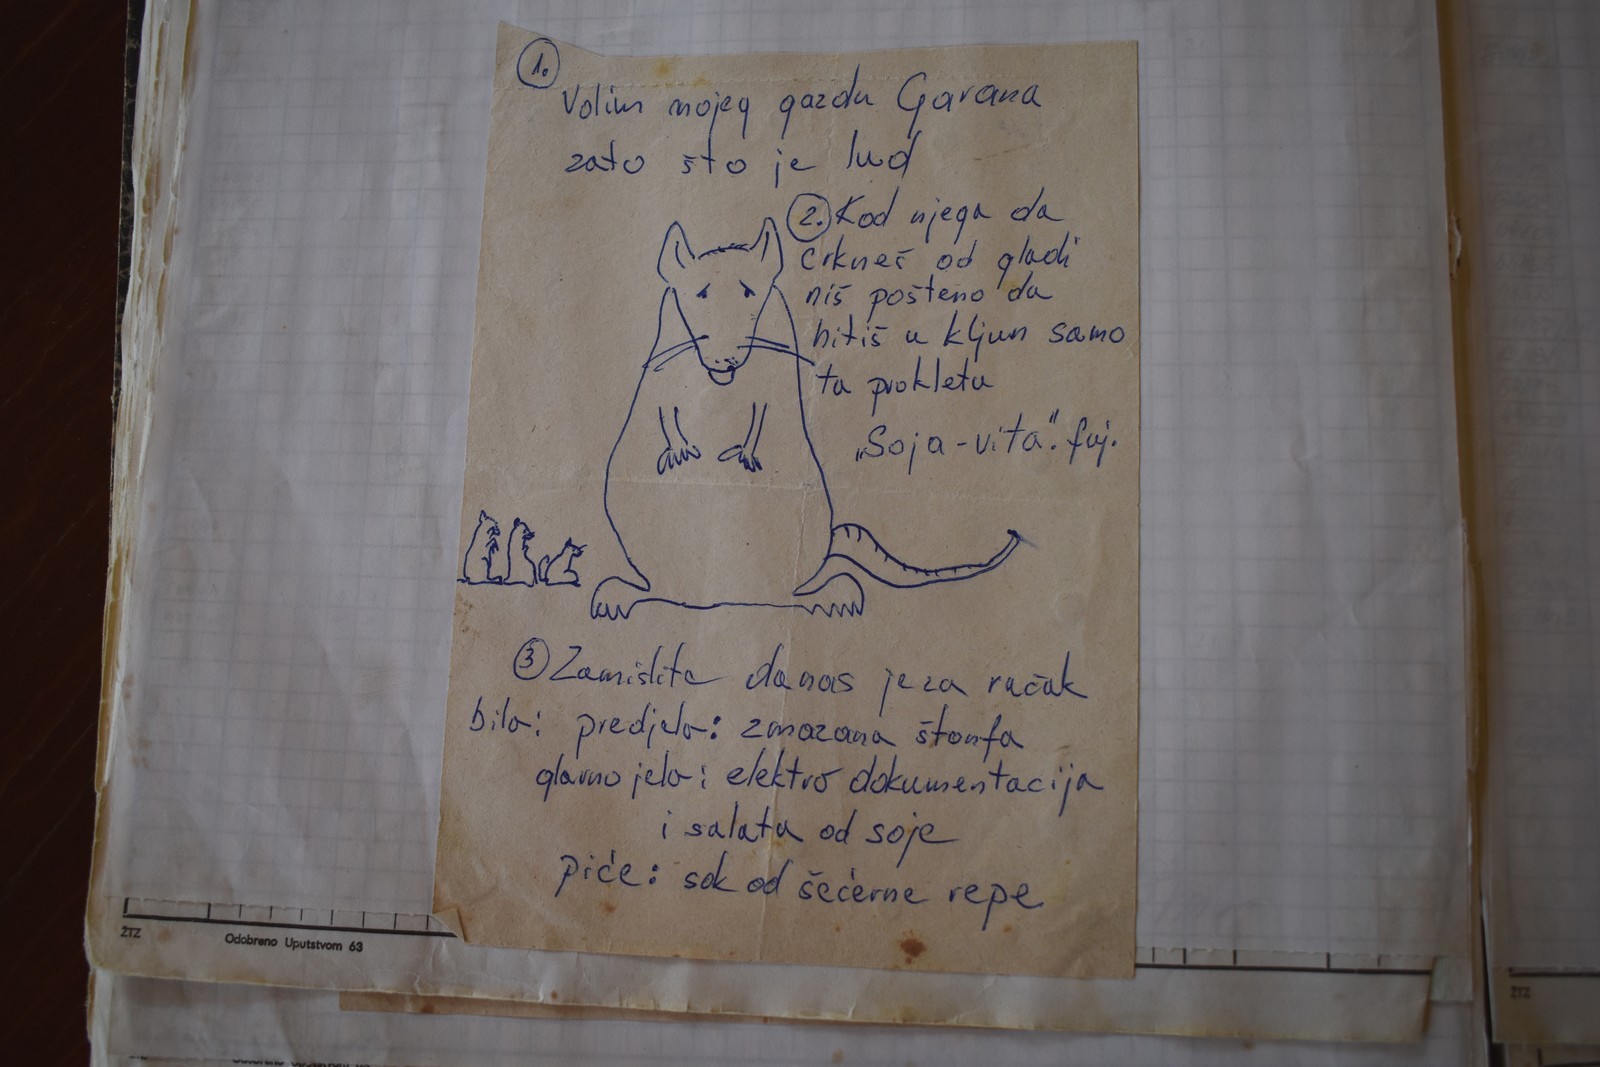 1.
Volim mojeg gazdu Garana
zato što je lud
2. Kod njega da
crkneš od gladi
niš pošteno da
hitiš u kljun samo
ta prokleta
„Soja-vita“. fuj.
3 Zamislite danas je za ručak
bilo: predjelo: zmazana štomfa
glavno jelo: elektro dokumentacija
i salata od soje
piće: sok od šećerne repe
ŽTZ
Odobreno Uputstvom 63
ŽTZ